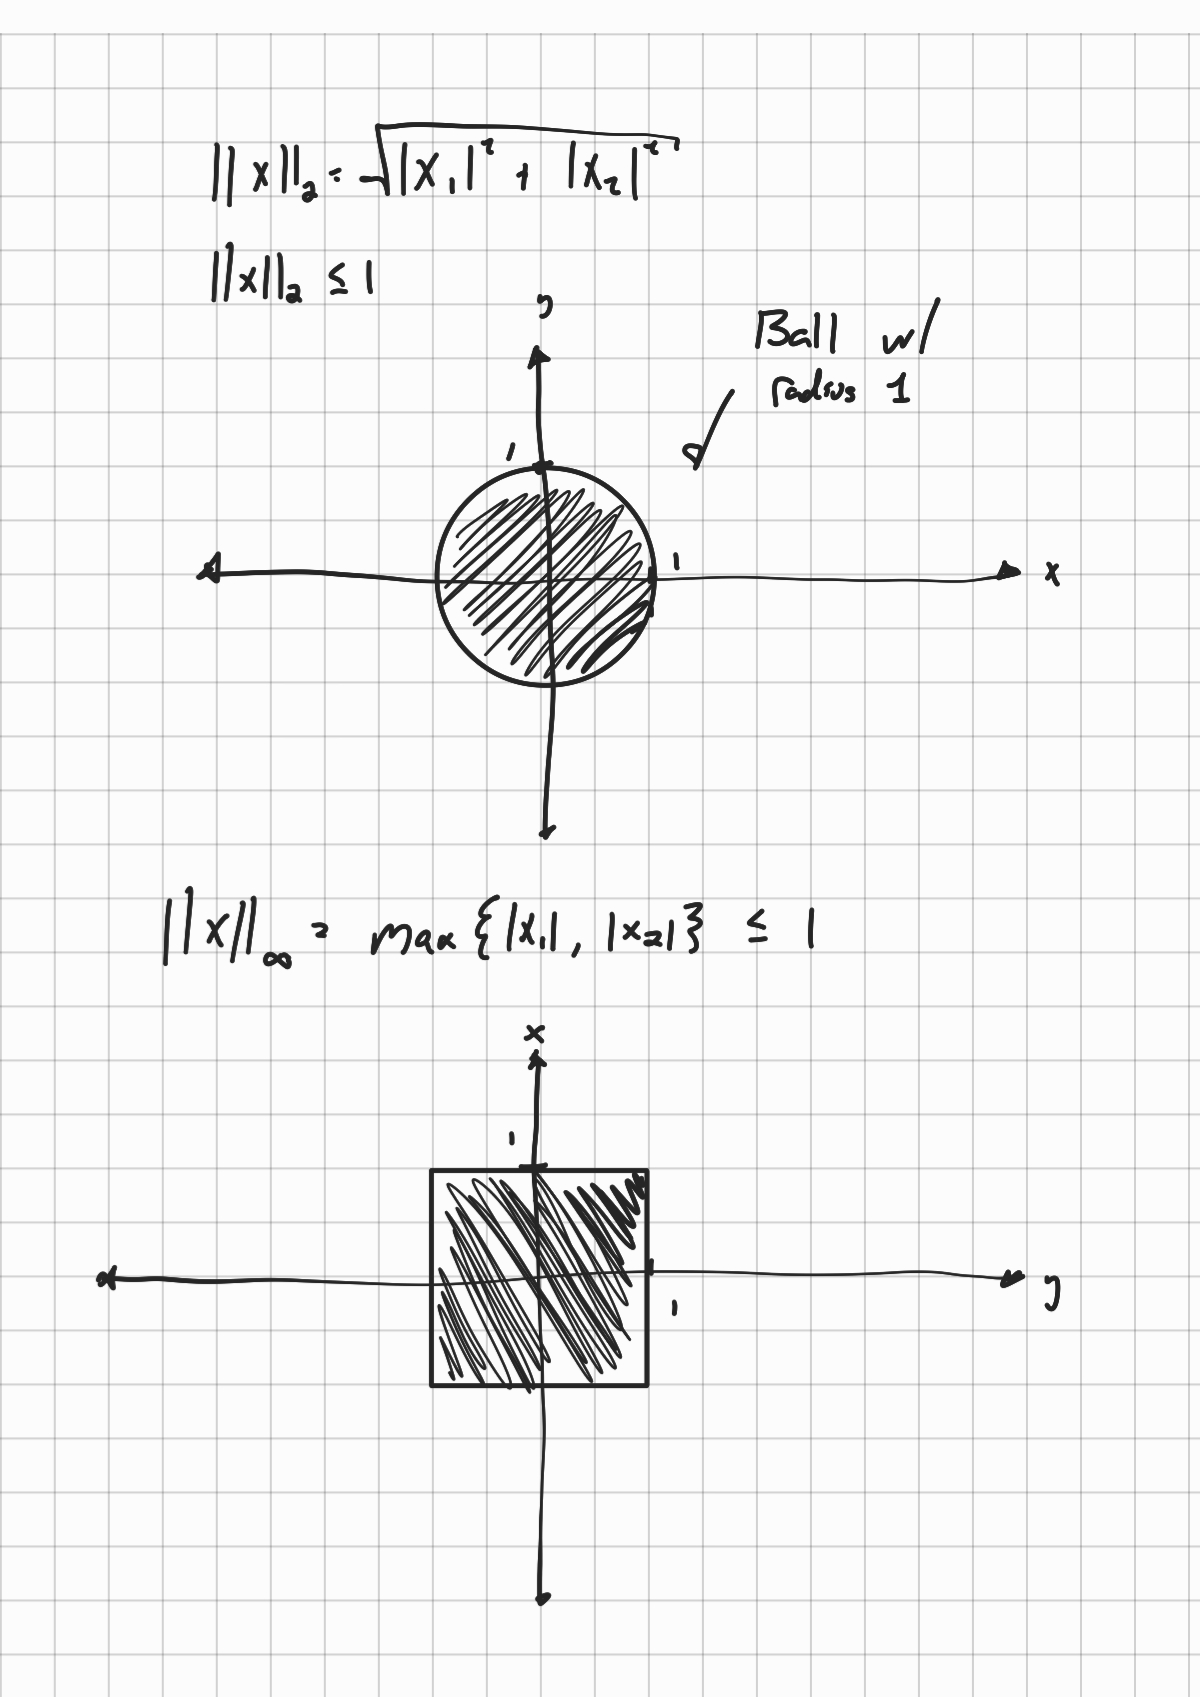 ||x||₂ = √|x₁|² + |x₂|²
||x||₂ ≤ 1
y
Ball w/
radius 1
1
1
x
||x||∞ = max{|x₁|, |x₂|} ≤ 1
x
1
y
1